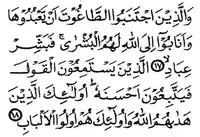 وَالَّذِينَ اجْتَنَبُوا الطَّاغُوتَ أَنْ يَعْبُدُوهَا
وَأَنَابُوا إِلَى اللَّهِ لَهُمُ الْبُشْرَىٰ ۚ فَبَشِّرْ
عِبَادِ ١٧ الَّذِينَ يَسْتَمِعُونَ الْقَوْلَ
فَيَتَّبِعُونَ أَحْسَنَهُ ۚ أُولَٰئِكَ الَّذِينَ
هَدَاهُمُ اللَّهُ وَأُولَٰئِكَ هُمْ أُولُو الْأَلْبَابِ ١٨